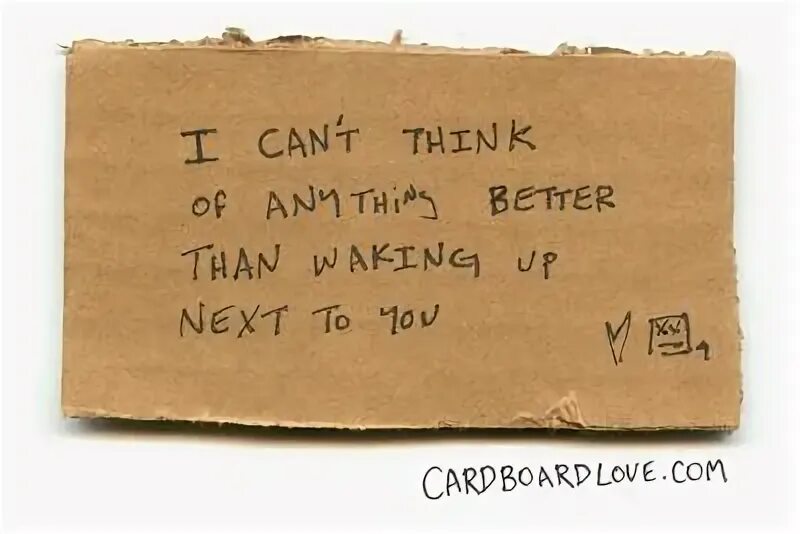 I CAN'T THINK
OF ANYTHiNg BETTER
THAN WAKING UP
NEXT TO YOU
CARDBOARDLOVE.COM